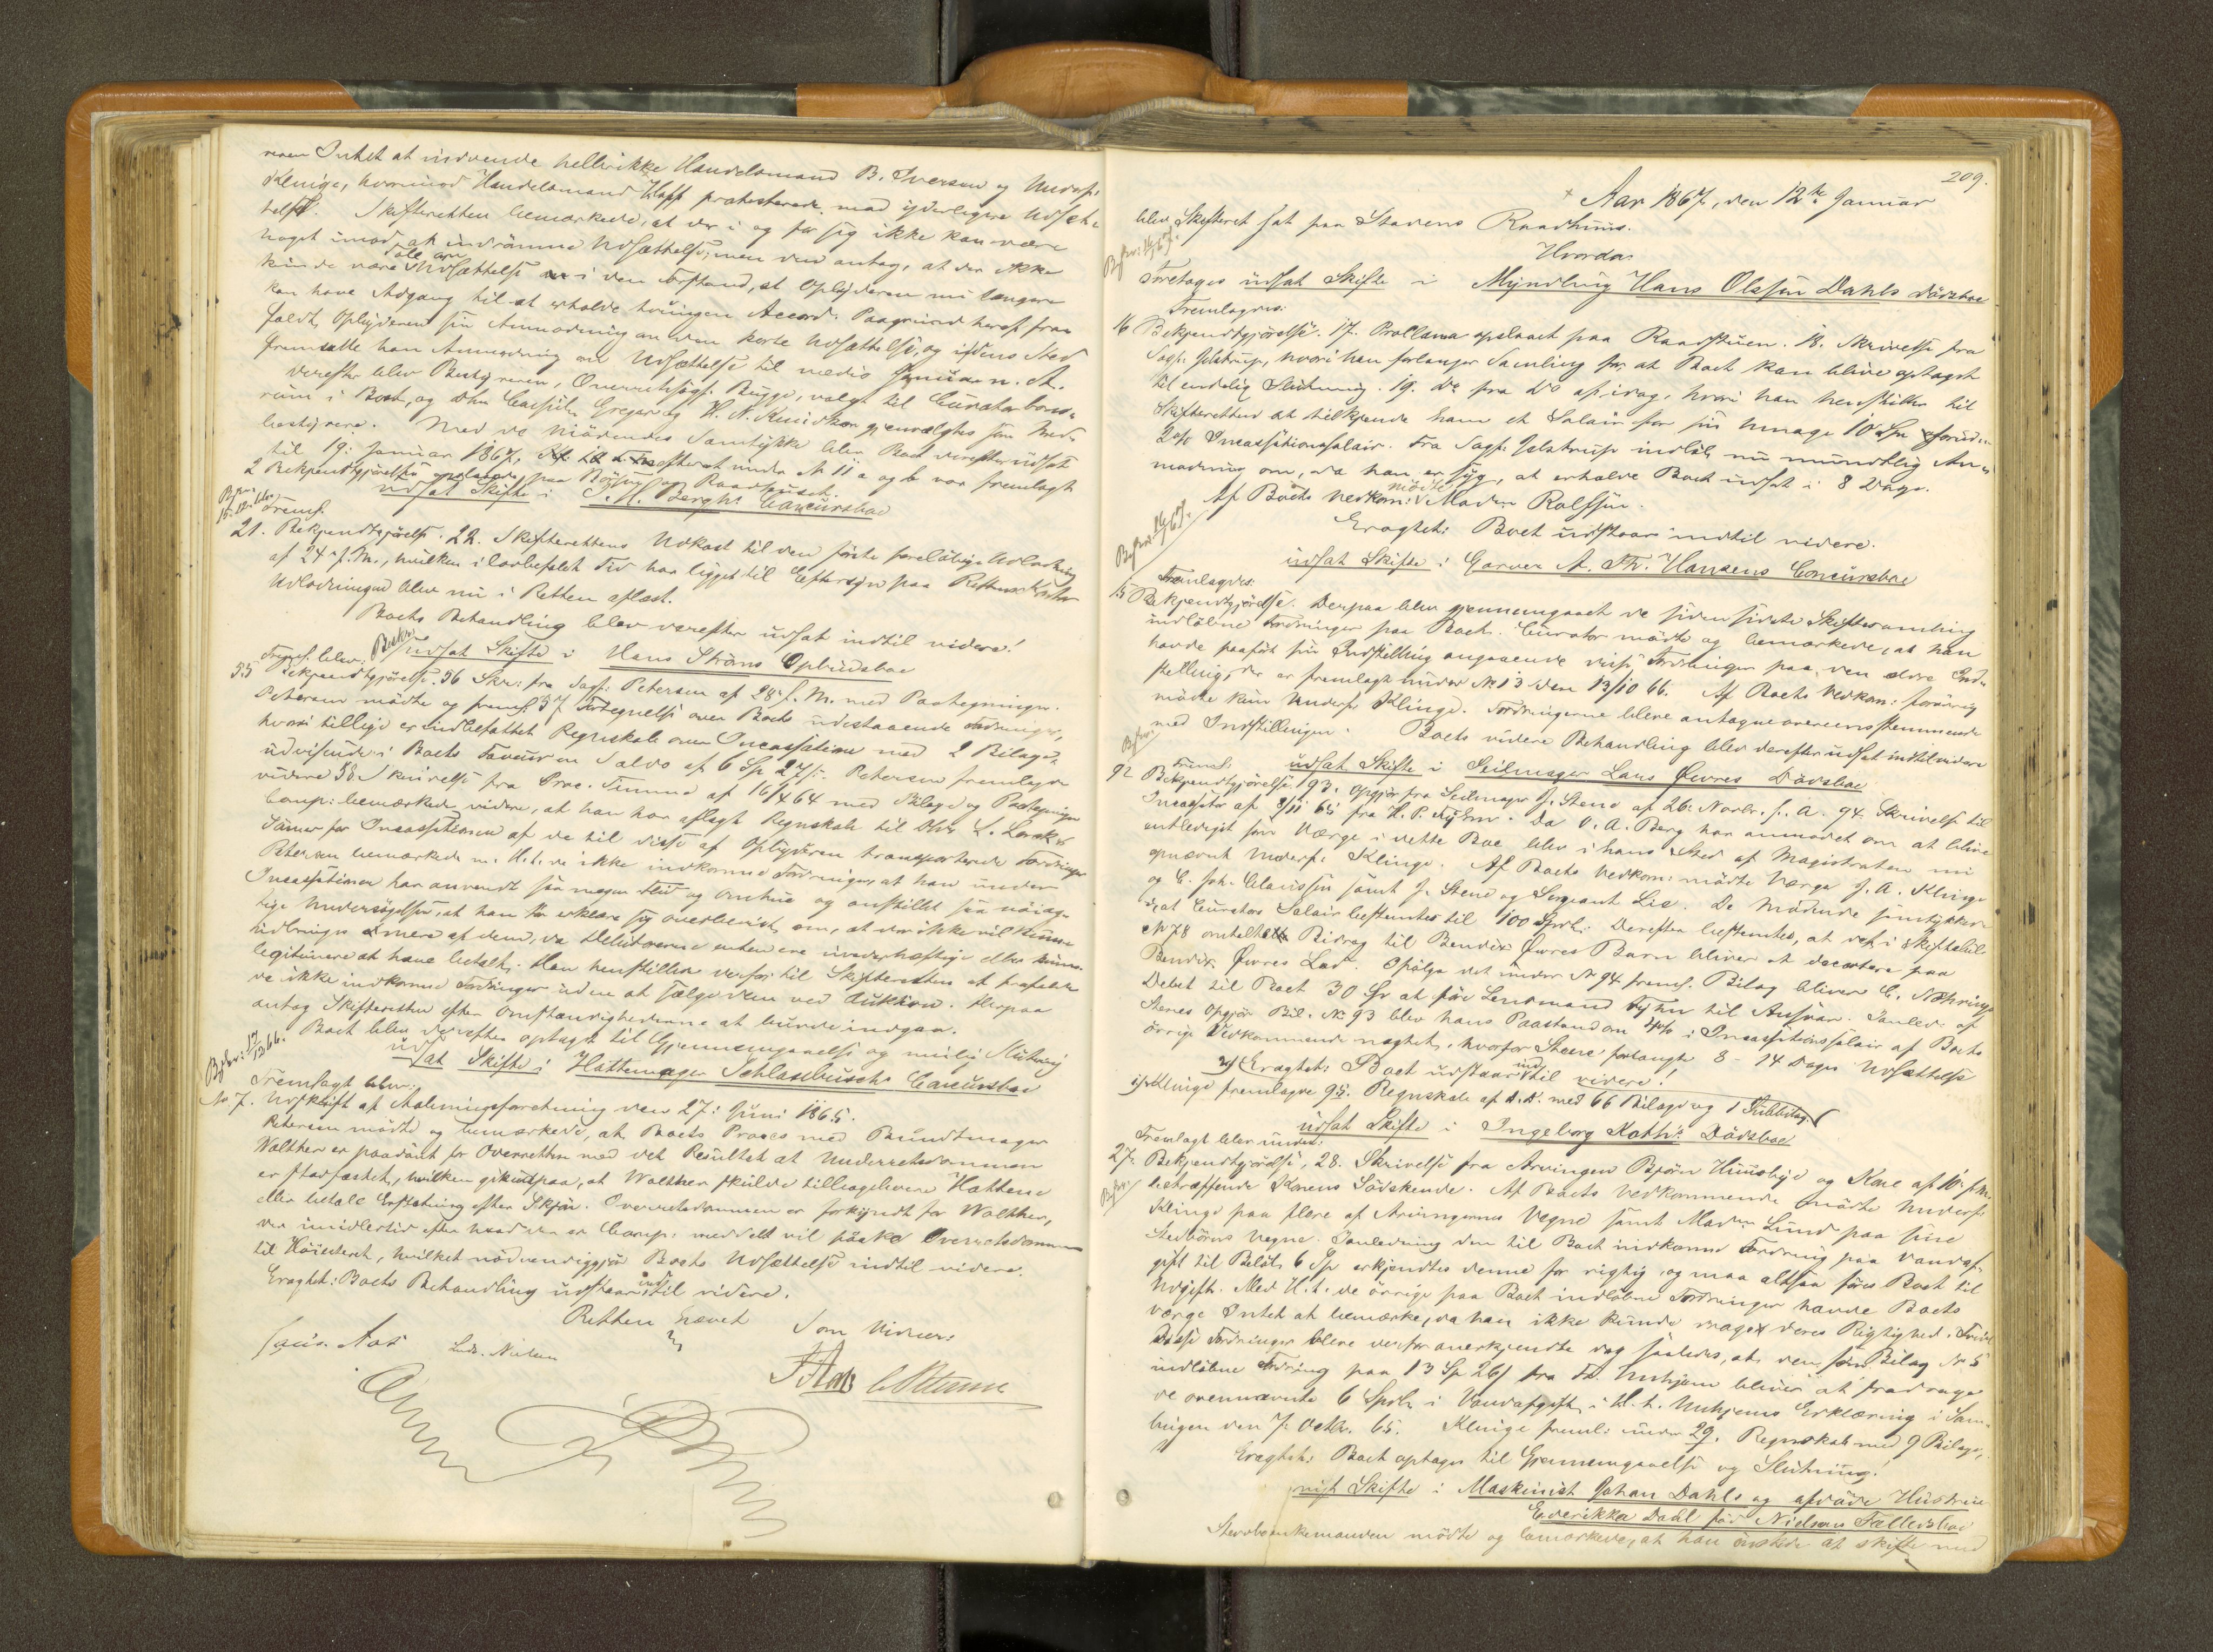 Intet at indvende hellerikke Handelsmand B. Iversen og Undf:
Klinge, hvorimod Handelsmand Hoff protesterede mod yderligere Udsæt-
telse. Skifteretten bemærkede, at der i og for sig ikke kan være
noget imod at indrømme Udsættelse, men den antog, at der ikke
kunde være Tale om Udsættelse i den Forstand, at Oplyderen nu længere
kan have Adgang til at erholde tvungen Accord. Paagrund heraf fra-
faldt Oplyderen sin Anmodning om den korte Udsættelse, og istedens Sted
fremsatte han Anmodning om Udsættelse til medio Januar n. A.
Derefter blev Bestyreren, Overretssagf. Bugge, valgt til Curator bono-
rum i Boet, og Dhrr Consul Greger og H. N. Knudtzon gjenvalgtes som Med-
bestyrere. Med de Mødendes Samtykke blev Boet derefter udsat
til 19. Januar 1867, efterat under № 11 a og b var fremlagt
2 Bekjendtgjørelser opslaaede paa Børsen og Raadhuset.
udsat Skifte i J. H. Berghs Concursboe
Fremf.
21. Bekjendtgjørelse. 22. Skifterettens Udkast til den første foreløbige Udlodning
af 24 f. M., hvilken i lovbefalet Tid har ligget til Eftersyn paa Rettens Kontor
Udlodningen blev nu i Retten oplæst.
Boets Behandling blev derefter udsat indtil videre!
udsat Skifte i Hans Strøms Opbudsboe
Fremf. blev:
55 Bekjendtgjørelse. 56 Skr: fra Sagf: Petersen af 28 f. M. med Paategninger.
Petersen mødte og fremf. 57 Fortegnelse over Boets udestaaende Fordringer,
hvori tillige er indbefattet Regnskab over Incassationen med 2 Bilage,
udvisende i Boets Faveur en Saldo af 6 Sp 27 s. Petersen fremlagde
videre 58. Skrivelse fra Proc. Timme af 16/4 64 med Bilage og Paategninger
Comp: bemærkede videre, at han har aflagt Regnskab til Dhrr L. Lorck &
Sønner for Incassationen af de til disse af Oplyderen transporterede Fordringer
Petersen bemærkede m. H. t. de ikke indkomne Fordringer, at han under
Incassationen har anvendt saa megen Flid og Omhue og anstillet saa nøiag-
tige Undersøgelser, at han tør erklære sig overbeviist om, at der ikke vil kunne
inddrives mere af dem, da Debitorerne enten ere uvederhæftige eller kunne
legitimere at have betalt. Han henstiller derfor til Skifteretten at frafalde
de ikke indkomne Fordringer uden at sælge dem ved Auktion. Herpaa
antog Skifteretten efter Omstændighederne at burde indgaa.
Boet blev derefter optaget til Gjennemgaaelse og mulig Slutning
udsat Skifte i Hattemager Schlasebusch's Concursboe
Fremlagt blev:
No 7. Udskrift af Aastedsforretning den 27: Juni 1865.
Petersen mødte og bemærkede, at Boets Proces med Bundtmager
Walther er paadømt for Overretten med det Resultat at Underretsdommen
er stadfæstet, hvilken gik ud paa, at Walther skulde tilbagelevere Hattene
eller betale Erstatning efter Skjøn. Overretsdommen er forkyndt for Walther,
der imidlertid efter hvad der er Comp: meddelt vil paaske Overretsdommen
til Høiesteret, hvilket nødvendiggjør Boets Udsættelse indtil videre.
Eragtet: Boets Behandling udstaar indtil videre.
Retten hævet
Som Vidner:
Ludv. Nielsen
209.
Aar 1867, den 12te Januar
blev Skifteret sat paa Stadens Raadhuus.
Hvorda
Foretoges udsat Skifte i Myndling Hans Olssøn Dahls Dødsboe
Fremlagdes:
16 Bekjendtgjørelse. 17. Proclama opslaaet paa Raadstuen. 18. Skrivelse fra
Sagf: Jelstrup, hvori han forlanger Samling for at Boet kan blive optaget
til endelig Slutning. 19. Do fra Do af idag, hvori han henstiller til
Skifteretten at tilkjende ham et Salair for sin Umage 10 Spr foruden
2% Incassationssalair. Fra Sagf: Jelstrup indløb nu mundtlig An-
modning om, da han er syg, at erholde Boet udsat i 8 Dage.
Af Boets Vedkom: mødte Madm Rolfsen.
Eragtet: Boet udstaar indtil videre.
udsat Skifte i Garver A. Th. Hansens Concursboe
Fremlagdes:
15 Bekjendtgjørelse. Derpaa blev gjennemgaaet de siden sidste Skiftesamling
indløbne Fordringer paa Boet. Curator mødte og bemærkede, at han
havde paaført sin Indstilling angaaende disse Fordringer paa den ældre Ind-
stilling, der er fremlagt under № 13 den 13/10 66. Af Boets Vedkom: forøvrig
mødte kun Underf: Klinge. Fordringerne bleve antagne overensstemmende
med Indstillingen. Boets videre Behandling blev derefter udsat indtil videre
udsat Skifte i Seilmager Lars Øwres Dødsboe
Fremf:
92 Bekjendtgjørelse, 93. Opgjør fra Seilmager J. Steno af 26. Novbr. f. A. 94. Skrivelse til
Incassator af 8/11 65 fra H. P. . Da O. A. Berg har anmodet om at blive
entlediget som Værge i dette Boe blev i hans Sted af Magistraten nu
opnævnt Underf: Klinge. Af Boets Vedkom: mødte Værge J. A. Klinge
og C. Joh. Clausssen samt J. Steno og Sergeant Lie. De Mødende samtykke-
de, at Curators Salair bestemtes til 100 Sprdl: Derefter bestemtes, at det i Skiftebil:
№ 78 omhandlede Bidrag til Bendix Øwres Barn bliver at decortere paa
Bendix Øwres Lod. Ifølge det under № 94 fremf. Bilag bliver C. Næhrings
Debet til Boet 30 Sp at føre Lensmand til Ansvar. Ianledn: af
Stenos Opgjør Bil. № 93 blev hans Paastand om 4% i Incassationssalair af Boets
øvrige Vedkommende nægtet, hvorfor Steno forlangte 8 - 14 Dages Udsættelse
2) Eragtet: Boet udstaar indtil videre!
1) Klinge fremlagde 95. Regnskab af D. D. med 66 Bilage og 1 Subbilag.
udsat Skifte i Ingeborg Kottis Dødsboe
Fremlagt blev under:
27. Bekjendtgjørelse, 28. Skrivelse fra Arvingen Bjørn Huusbye og Kone af 10 f. M.
betræffende Konens Sødskende. Af Boets Vedkommende mødte Underf:
Klinge paa flere af Arvingernes Vegne samt Madm Lund paa sine
Stedbørns Vegne. Ianledning den til Boet indkomne Fordring paa Vandaf-
gift til Beløb 6 Sp erkjendtes denne for rigtig, og maa altsaa føres Boet til
Udgift. Med H. t. de øvrige paa Boet indløbne Fordringer havde Boets
Værge Intet at bemærke, da han ikke kunde drage deres Rigtighed i Tvivl
Disse Fordringer bleve derfor anerkjendte dog saaledes, at den som Bilag № 5
indløbne Fordring paa 13 Sp 26 s fra Fr. Unhjem bliver at fradrage
de ovennævnte 6 Sprdl: i Vandafgift, i H. t. Unhjems Erklæring i Sam-
lingen den 7 Octbr. 65. Klinge freml: under 29. Regnskab med 9 Bilage.
Eragtet: Boet optages til Gjennemgaaelse og Slutning!
nyt Skifte i Maskinist Johan Dahls og afdøde Hustrue
Ederikka Dahl fød Nielsens Fællesboe
Stervboenkemanden mødte og bemærkede, at han ønskede at skifte med